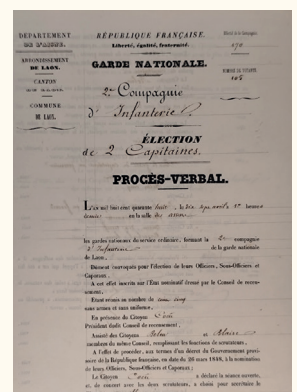 DÉPARTEMENT
DE L'AISNE.
ARRONDISSEMENT
DE LAON.
CANTON
COMMUNE
DE LAON.
RÉPUBLIQUE FRANÇAISE.
Liberté, égalité, fraternité.
GARDE NATIONALE.
2e Compagnie
d'Infanterie
ÉLECTION
de 2 Capitaines.
PROCÈS-VERBAL.
L'an mil huit cent quarante huit, le dix avril heures
en la salle des
les gardes nationaux du service ordinaire, formant la 2e compagnie
d'Infanterie de la garde nationale
de Laon,
Dûment convoqués pour l'élection de leurs Officiers, Sous-Officiers et
Caporaux,
A cet effet inscrits sur l'État nominatif dressé par le Conseil de recen-
sement,
Étant réunis au nombre de cent cinq
sans armes et sans uniforme,
En présence du Citoyen
Président dudit Conseil de recensement,
Assisté des Citoyens et
membres du même Conseil, remplissant les fonctions de scrutateurs,
A l'effet de procéder, aux termes d'un décret du Gouvernement provi-
soire de la République française, en date du 1848, à la nomination
de leurs Officiers, Sous-Officiers et Caporaux;
Le Citoyen a déclaré la séance ouverte,
et, de concert avec les deux scrutateurs, a choisi pour secrétaire le